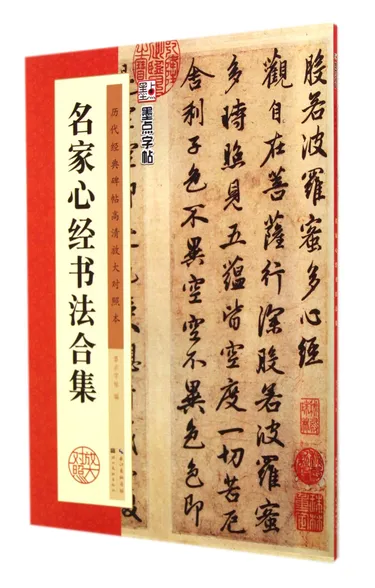 历代经典碑帖高清放大对照本
名家心经书法合集
墨点字帖 编
放大
对照
墨点字帖
般若波羅蜜多心經
觀自在菩薩行深般若波羅蜜
多時照見五蘊皆空度一切苦厄
舍利子色不異空空不異色色即